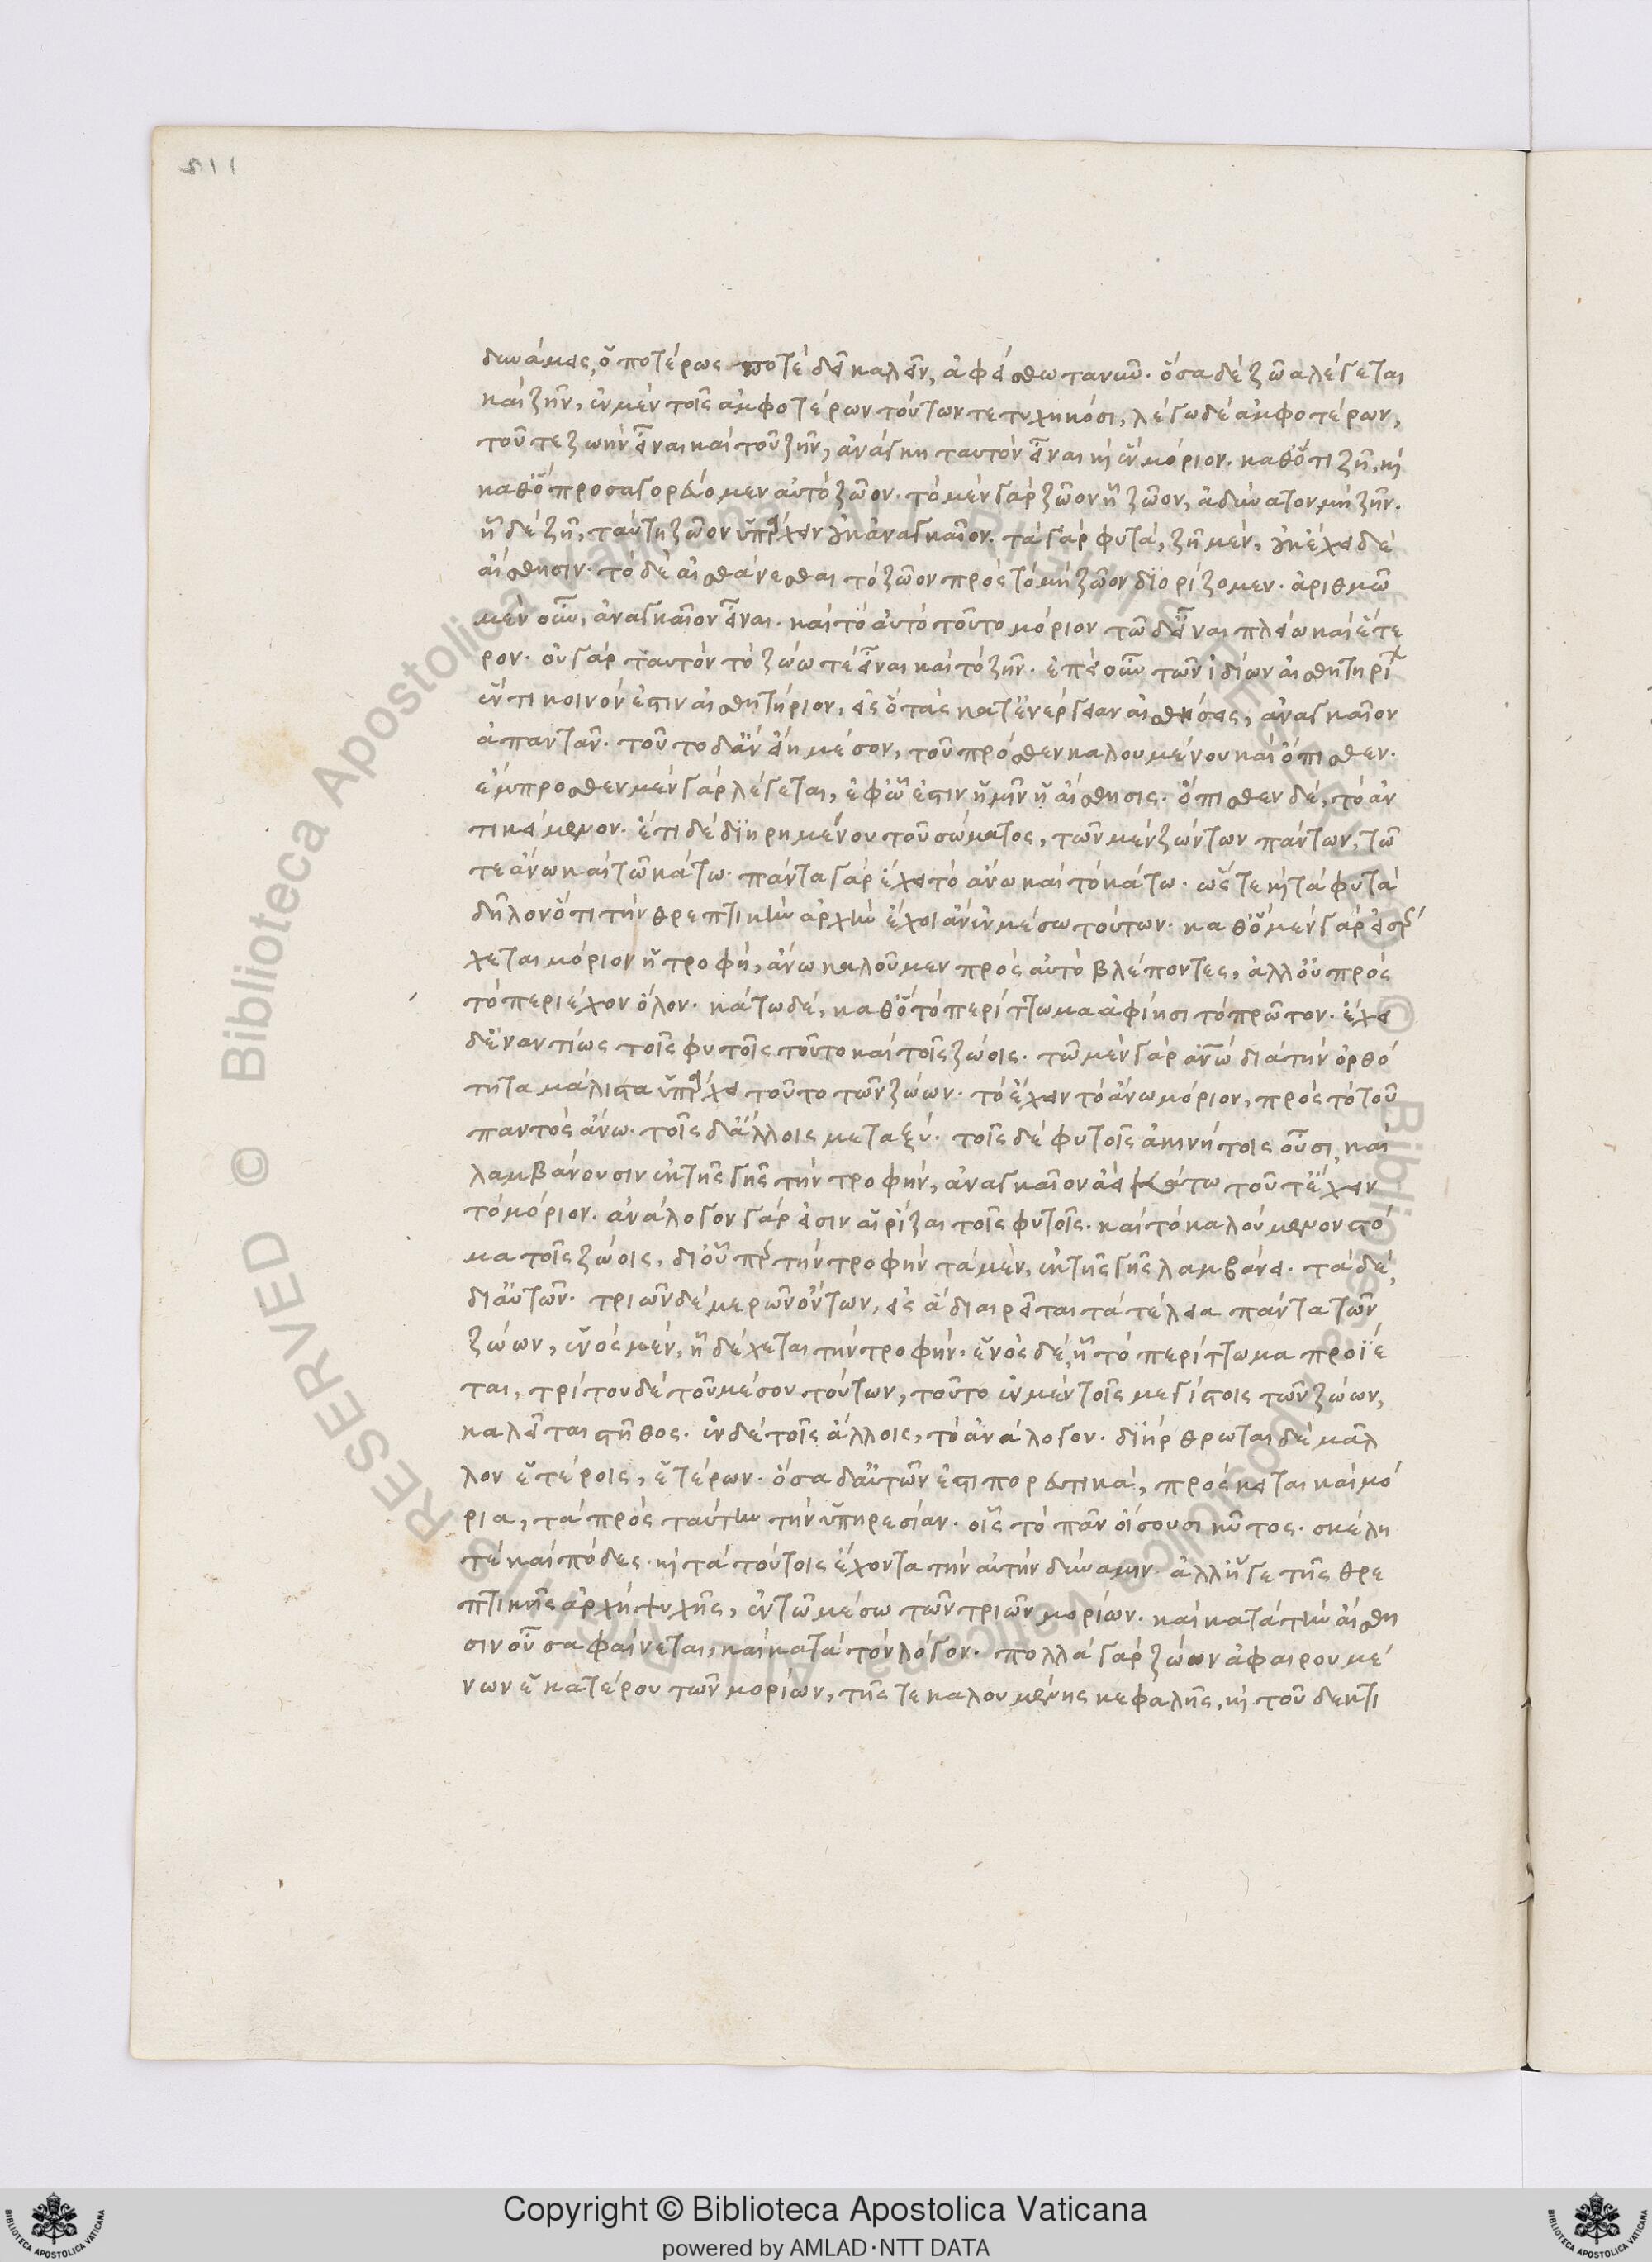 511
δυνάμεις, ὁποτέρως ποτὲ δεῖ καλεῖν, ἀφείσθω τανῦν. ὅσα δὲ ζῶα λέγεται
καὶ ζῆν, ἐν μὲν τοῖς ἀμφοτέρων τούτων τετυχηκόσι, λέγω δὲ ἀμφοτέρων,
τοῦ τε ζωὴν εἶναι καὶ τοῦ ζῆν, ἀνάγκη ταυτὸν εἶναι κ̀ ἓν μόριον. καθ' ὅ τι ζῆ, κ̀
καθ' ὃ προσαγορεύομεν αὐτὸ ζῶον. τὸ μὲν γὰρ ζῶον ἧ ζῶον, ἀδύνατον μὴ ζῆν.
ἧ δὲ ζῆ, ταύτη ζῶον ὑπάρχειν οὐκ ἀναγκαῖον. τὰ γὰρ φυτά, ζῆ μέν, οὐκ ἔχει δὲ
αἴσθησιν. τὸ δὲ αἰσθάνεσθαι τὸ ζῶον πρὸς τὸ μὴ ζῶον διορίζομεν. ἀριθμῶ
μὲν οὖν, ἀναγκαῖον εἶναι. καὶ τὸ αὐτὸ τοῦτο μόριον τῶ δ' εἶναι πλείω καὶ ἕτε
ρον. οὐ γὰρ ταυτὸν τὸ ζώω τε εἶναι καὶ τὸ ζῆν. ἐπεὶ οὖν τῶν ἰδίων αἰσθητηρί
ἕν τι κοινόν ἐστιν αἰσθητήριον, εἰς ὃ τὰς κατ' ἐνέργειαν αἰσθήσεις, ἀναγκαῖον
ἀπαντᾶν. τοῦτο δ' ἂν εἴη μέσον, τοῦ πρόσθεν καλουμένου καὶ ὄπισθεν.
ἔμπροσθεν μὲν γὰρ λέγεται, ἐφ' ὧ ἐστιν ἡμῖν ἡ αἴσθησις. ὄπισθεν δὲ, τὸ ἀν
τικείμενον. ἔτι δὲ διηρημένου τοῦ σώματος, τῶν μὲν ζώντων πάντων, τῶ
τε ἄνω καὶ τῶ κάτω. πάντα γὰρ ἔχει τὸ ἄνω καὶ τὸ κάτω. ὥστε κ̀ τὰ φυτὰ
δῆλον ὅτι τὴν θρεπτικὴν ἀρχὴν ἔχοι ἂν ἐν μέσω τούτων. καθ' ὃ μὲν γὰρ εἰσέρ
χεται μόριον ἡ τροφὴ, ἄνω καλοῦμεν πρὸς αὐτὸ βλέποντες, ἀλλ' οὐ πρὸς
τὸ περιέχον ὅλον. κάτω δὲ, καθ' ὃ τὸ περίττωμα ἀφίησι τὸ πρῶτον. ἔχει
δ' ἐναντίως τοῖς φυτοῖς τοῦτο καὶ τοῖς ζώοις. τῶ μὲν γὰρ ἀνω διὰ τὴν ὀρθό
τητα μάλιστα ὑπάρχει τοῦτο τῶν ζώων. τὸ ἔχειν τὸ ἄνω μόριον, πρὸς τὸ τοῦ
παντὸς ἄνω. τοῖς δ' ἄλλοις μεταξύ. τοῖς δὲ φυτοῖς ἀκινήτοις οὖσι, καὶ
λαμβάνουσιν ἐκ τῆς γῆς τὴν τροφὴν, ἀναγκαῖον ἀεὶ κάτω τοῦτ' ἔχειν
τὸ μόριον. ἀνάλογον γάρ εἰσιν αἱ ῥίζαι τοῖς φυτοῖς. καὶ τὸ καλούμενον στό
μα τοῖς ζώοις, δι' οὗ πρ τὴν τροφὴν τὰ μὲν, ἐκ τῆς γῆς λαμβάνει. τὰ δὲ,
δι' αὑτῶν. τριῶν δὲ μερῶν ὄντων, εἰς ἃ διαιρεῖται τὰ τέλεια πάντα τῶν
ζώων, ἑνὸς μὲν, ἧ δέχεται τὴν τροφήν. ἑνὸς δὲ, ἧ τὸ περίττωμα προΐε
ται, τρίτου δὲ τοῦ μέσου τούτων, τοῦτο ἐν μὲν τοῖς μεγίστοις τῶν ζώων,
καλεῖται στῆθος. ἐν δὲ τοῖς ἄλλοις, τὸ ἀνάλογον. διήρθρωται δὲ μᾶλ
λον ἑτέροις, ἑτέρων. ὅσα δ' αὐτῶν ἐστι πορευτικὰ, πρόσκειται καὶ μό
ρια, τὰ πρὸς ταύτην τὴν ὑπηρεσίαν. οἷς τὸ πᾶν οἴσουσι κῦτος. σκέλη
τὲ καὶ πόδες. κ̀ τὰ τούτοις ἔχοντα τὴν αὐτὴν δύναμιν. ἀλλ' ἥ γε τῆς θρε
πτικῆς ἀρχὴ ψυχῆς, ἐν τῶ μέσω τῶν τριῶν μορίων. καὶ κατὰ τὴν αἴσθη
σιν οὖσα φαίνεται, καὶ κατὰ τὸν λόγον. πολλὰ γὰρ ζώων ἀφαιρουμέ
νων ἑκατέρου τῶν μορίων, τῆς τε καλουμένης κεφαλῆς, κ̀ τοῦ δεκτι
© Biblioteca Apostolica Vaticana
RESERVED
Copyright © Biblioteca Apostolica Vaticana
powered by AMLAD·NTT DATA
BIBLIOTECA APOSTOLICA VATICANA
BIBLIOTECA APOSTOLICA VATICANA